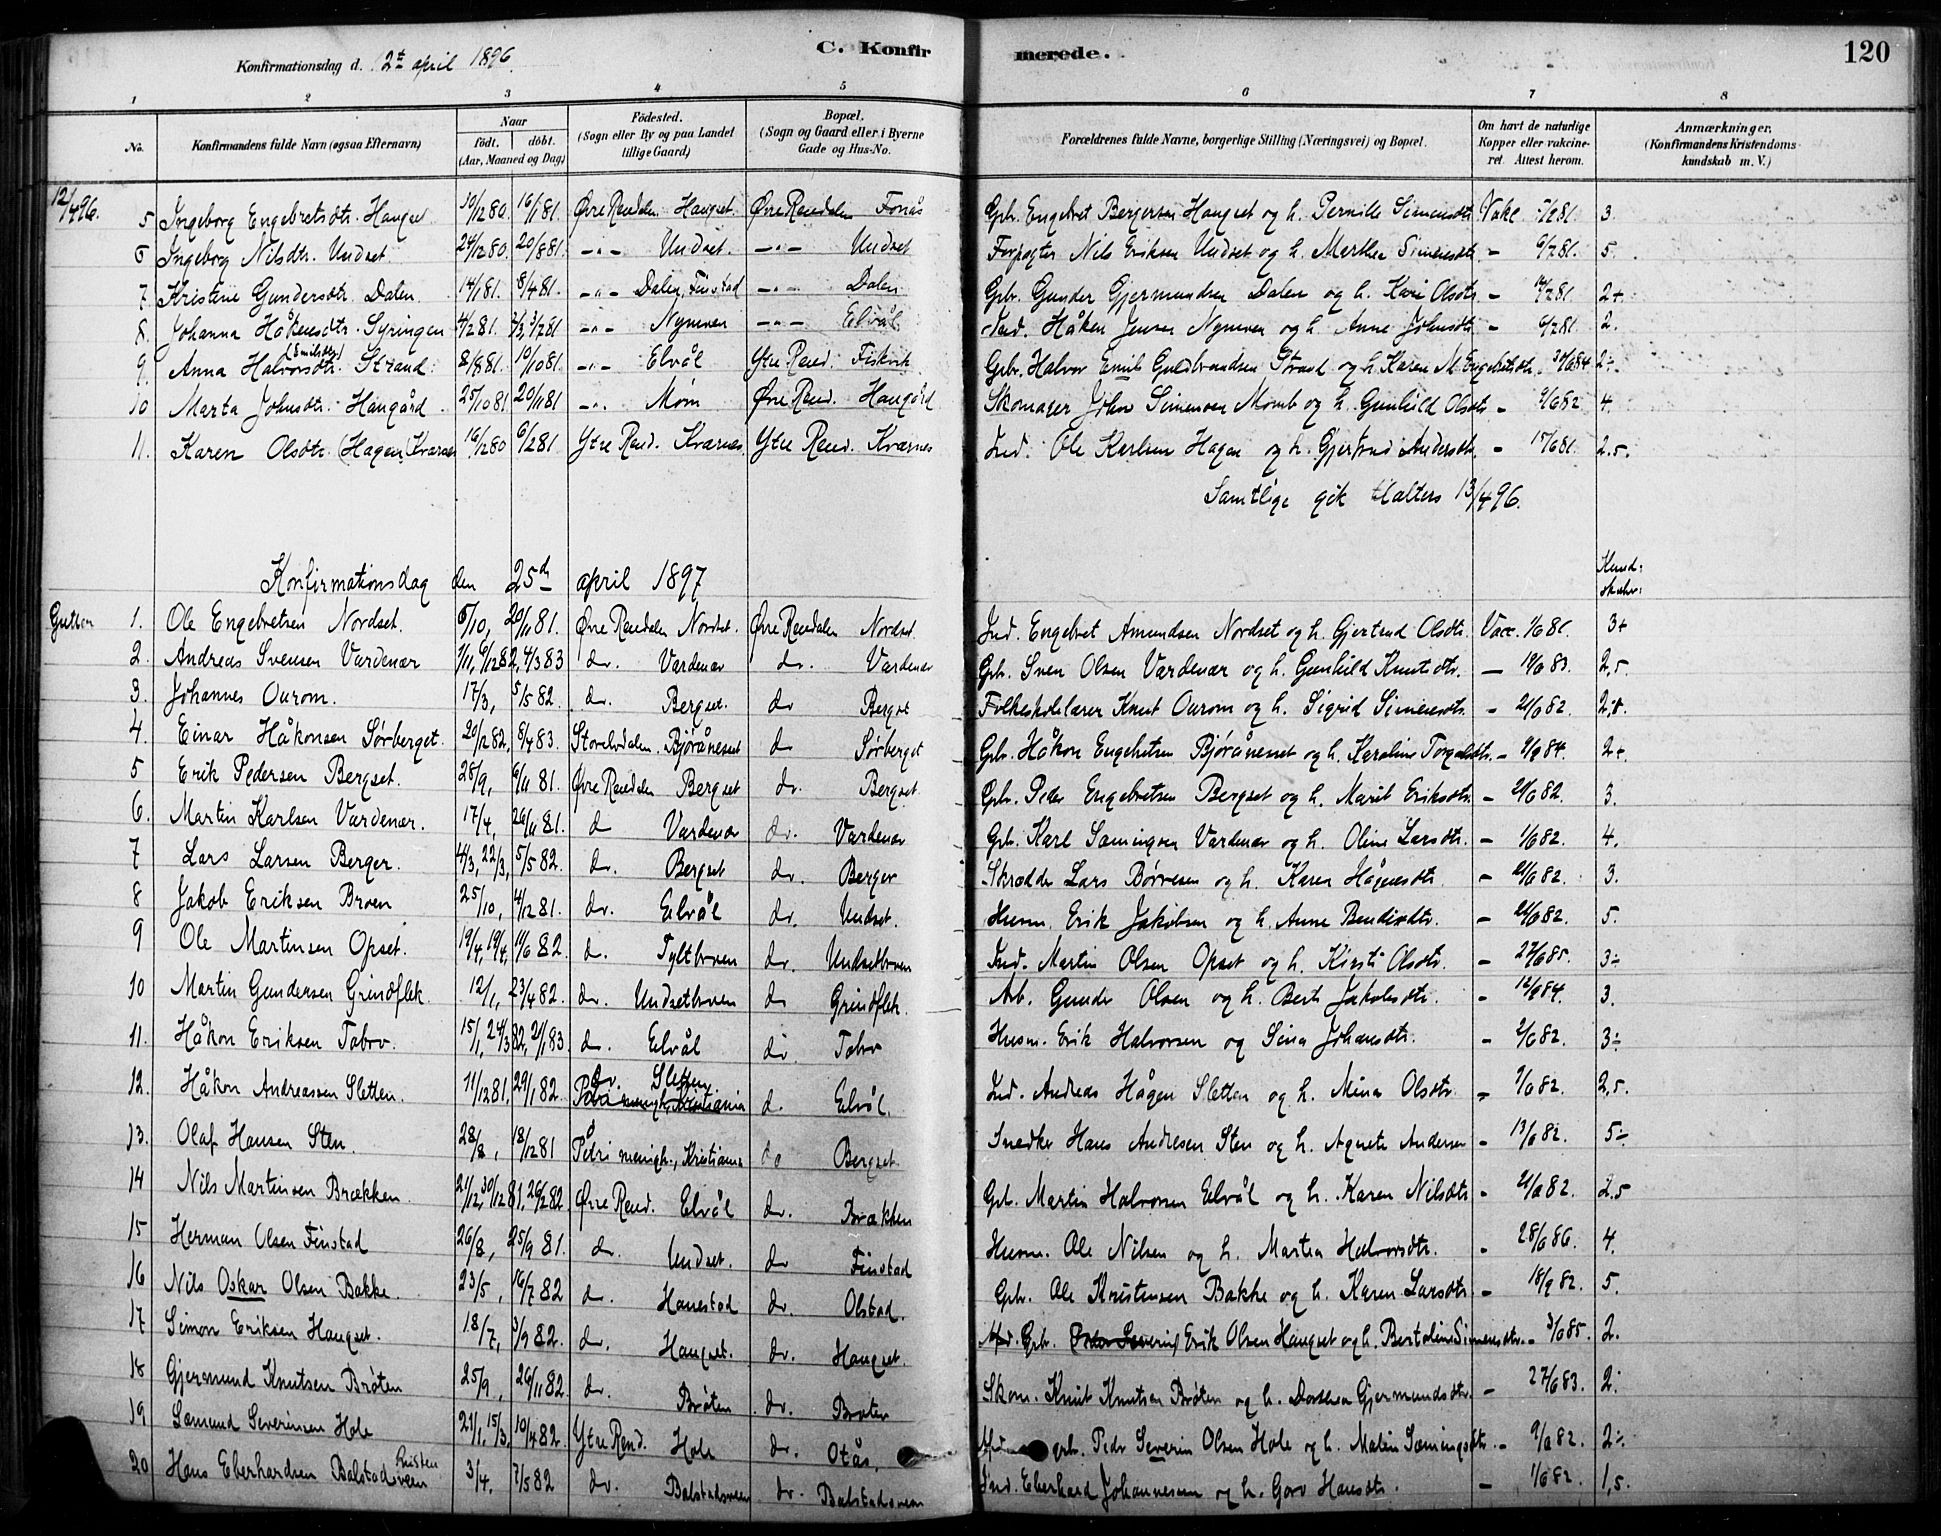 C. Konfirmerede. 120
Konfirmationsdag d. 12te april 1896.
1 2 3 4 5 6 7 8
No. Konfirmandens fulde Navn (ogsaa Efternavn) Naar født. døbt. (Aar, Maaned og Dag) Fødested. (Sogn eller By og paa Landet tillige Gaard) Bopæl. (Sogn og Gaard eller i Byerne Gade og Hus-No. Forældrenes fulde Navne, borgerlige Stilling (Næringsvei) og Bopæl. Om havt de naturlige Kopper eller vakcineret. Attest herom. Anmærkninger. (Konfirmandens Kristendomskundskab m. V.)
12/4 96. 5 Ingeborg Engebretsdtr. Haugset 10/12 80. 16/1 81. Øvre Rendalen Haugset. Øvre Rendalen Fonås Gbr. Engebret Bergersen Haugset og h. Pernille Simensdtr. Vakc. 7/7 81. 3.
6 Ingeborg Nilsdtr. Undset 24/12 80. 20/8 81. -"- Undset. -"- Undset Forpagter Nils Eriksen Undset og h. Marthea Simensdtr. - 6/7 81. 5.
7 Kristine Gundersdtr. Dalen 14/1 81. 8/4 81. -"- Dalen, Finstad -"- Dalen Gbr. Gunder Gjermundsen Dalen og h. Kari Olsdtr. - 14/7 81 2+
8. Johanna Håkensdtr. Syringen 4/2 81. -"- Nymoen -"- Elvål Ind. Håken Jensen Nymoen og h. Anne Johnsdtr. - 6/7 81. 2.
9. Anna Halvorsdtr. (Emilsdtr.) Strand 2/8 81. 10/10 81. -"- Elvål Ytre Rend. Fiskvik Gbr. Halvor Emil Guldbrandsen Strand og h. Karen M. Engebretsdtr. 30/6 84 2÷
10 Marta Johnsdtr. Haugård 25/10 81 20/11 81 -"- Møm Øvre Rend. Haugård Skomager John Simensen Momb og h. Gunhild Olsdtr. - 9/6 82 4.
11. Karen Olsdtr. (Hagen) Kværnes 16/12 80 6/2 81. Ytre Rend. Kværnes Ytre Rend. Kværnes Ind. Ole Karlsen Hagen og h. Gjertrud Andersdtr. - 17/6 81. 2.5.
Samtlige gik tilalters 13/4 96.
Konfirmationsdag den 25de april 1897 Kundskaber:
Gutter 1. Ole Engebretsen Nordset. 6/10, 20/11 81. Øvre Rendalen Nordset. Øvre Rendalen Nordset. Ind. Engebret Amundsen Nordset og h. Gjertrud Olsdtr. Vacc. 1/6 81. 3+
2. Andreas Svensen Vardenær 1/11, 6/12 82, 4/3 83 do. Vardenær do. Vardenær Gbr. Sven Olsen Vardenær og h. Gunhild Knutsdtr. - 19/6 83. 2,5.
3. Johannes Ourom. 17/3, 5/5 82. do. Bergset. do Bergset Folkeskolelærer Knut Ourom og h. Sigrid Simensdtr. - 21/6 82.
4. Einar Håkonsen Sørberget. 20/12 82, 8/4 83. Storelvdalen. Bjørånesset do Sørberget Gbr. Håkon Engebretsen Bjørånesset og h. Karoline - 9/9 84. 2+
5 Erik Pedersen Bergset. 28/9, 6/11 81. Øvre Rendalen Bergset do. Bergset. Gbr. Peder Engebretsen Bergset og h. Marit Eriksdtr. - 21/6 82. 3.
6. Martin Karlsen Vardenær. 17/4, 26/11 81. do Vardenær do. Vardenær Gbr. Karl Sæmingsen Vardenær og h. Oline Larsdtr. - 1/6 82. 4.
7 Lars Larsen Berger. 4/3, 22/3, 5/5 82. do. Bergset do. Berger Skrædder Lars Børresen og h. Karen Hågensdtr. - 21/6 82. 3.
8 Jakob Eriksen Broen 25/10, 4/12 81. do. Elvål do. Undset. Husm. Erik Jakobsen og h. Anne Bendixdtr. - 21/6 82. 5.
9 Ole Martinsen Opset. 19/4, 19/4, 11/6 82 do. Tyltbroen do. Undsetbroen Ind. Martin Olsen Opset og h. Kirsti Olsdtr. - 27/6 85. 3÷
10 Martin Gundersen Grindflek. 12/1, 23/4 82. do. Undsetbroen do Grindflek Arb. Gunder Olsen og h. Berte Jakobsdtr. - 12/9 84. 3.
11. Håkon Eriksen Tabro. 15/1, 24/3 82, 21/1 83. do. Elvål do Tabro Husm. Erik Halvorsen og Sina Johansdtr. - 2/6 82. 3÷
12. Håkon Andreassen Sletten. 11/12 81, 29/1 82. do. Sletten do. Elvål. Ind. Andreas Hågen Sletten og h. Mina Olsdtr. - 1/6 82. 2,5.
13. Olaf Hansen Sten. 28/8, 18/12 81 Petri menigh., Kristiania do Bergset. Snedker Hans Andresen Sten og h. Agnete Andersen - 13/6 82. 5÷
14 Nils Martinsen Brækken. 21/12, 30/12 81, 26/2 82 Øvre Rend. Elvål do. Brækken Gbr. Martin Halvorsen Elvål og h. Karen Nilsdtr. - 21/6 82. 2.5
15 Herman Olsen Finstad 26/8, 25/9 81. do. Undset. do Finstad Husm. Ole Nilsen og h. Martea Halvorsdtr. - 28/6 86. 4.
16 Nils Oskar Olsen Bakke. 23/5, 16/7 82 do. Hanestad do. Olstad. Gbr. Ole Kristensen Bakke og h. Karen Larsdtr. - 18/9 82. 5.
17 Simon Eriksen Haugset. 18/7, 3/9 82. do. Haugset. do. Haugset. Gbr. Erik Olsen Haugset og h. Bertoline Simensdtr. - 3/6 85. 2.
18 Gjermund Knutsen Brøten 25/9, 26/11 82. do. Brøten do. Brøten Skom. Knut Knutsen Brøten og h. Dorthea Gjermundsdtr. - 27/6 83. 2÷
19 Sæmund Severinsen Hole 21/1, 15/3, 10/4 82. Ytre Rend. Hole do. Otås. gbr. Peder Severin Olsen Hole og h. Malin Sæmingsdtr. - 9/6 82. 2÷
20 Hans Eberhardsen Balstadsveen 3/4, 7/5 82 do. Balstadsveen do. Balstadsveen Ind. Eberhard Johannesen og h. Goro Hansdtr. - 1/6 82. 1,5.